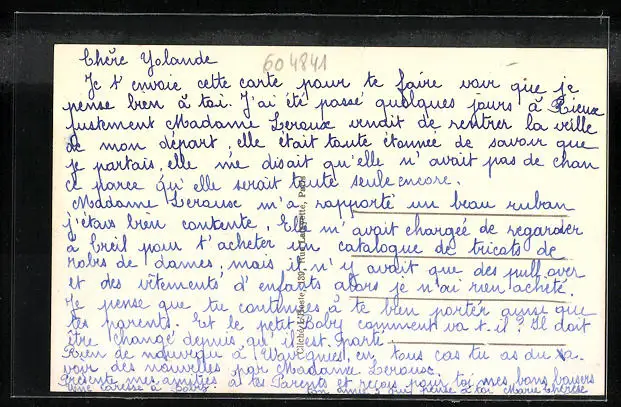 Chère Yolande
604841
Je t'envoie cette carte pour te faire voir que je
pense bien à toi. J'ai été passé quelques jours à Rieux
justement Madame Leroux venait de rentrer la veille
de mon départ, elle était toute étonnée de savoir que
je partais, elle me disait qu'elle n'avait pas de chan
ce parce qu'elle serait toute seule encore.
Madame Leroux m'a rapporté un beau ruban
j'étais bien contente, Elle m'avait chargée de regarder
à Creil pour t'acheter un catalogue de tricots de
robes de dames, mais il n'y avait que des pull over
et des vêtements d'enfants alors je n'ai rien acheté.
Je pense que tu continues à te bien porter ainsi que
tes parents. Et le petit Baby comment va t-il? Il doit
être changé depuis qu'il est
Rien de nouveau à en tous cas tu as du
voir des nouvelles par Madame Leroux.
Présente mes amitiés à tes Parents et reçois pour toi mes bons baisers
Une caresse à Baby. Ton amie qui pense à toi Marie Thérèse
Rue Lafayette, Paris